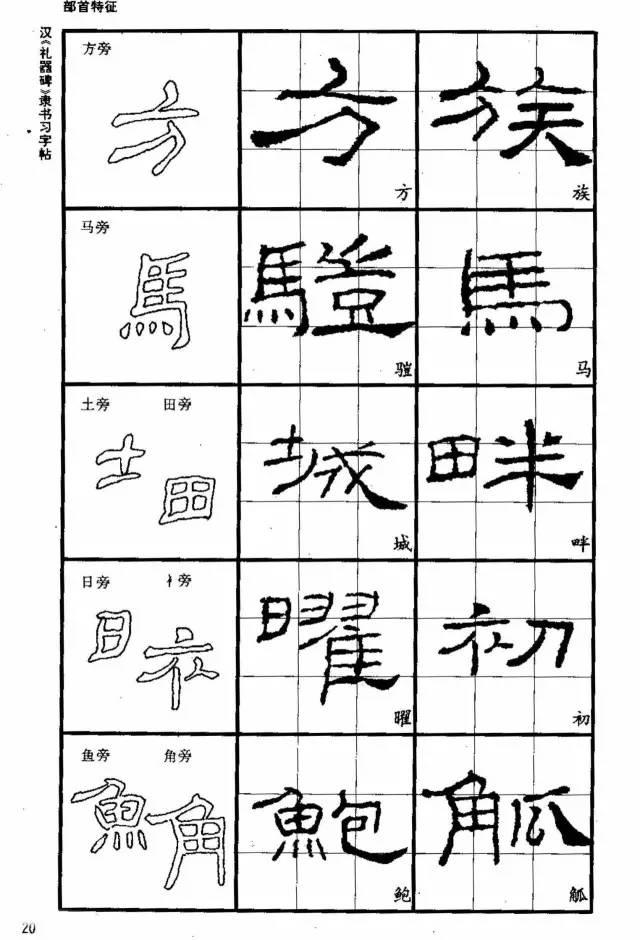 部首特征
汉《礼器碑》隶书习字帖
方旁
方
方
族
方
族
马旁
馬
騏
馬
骥
马
土旁 田旁
土 田
城
畔
城
畔
日旁 衤旁
日 衤
曜
初
曜
初
鱼旁 角旁
魚 角
鮑
觚
鲍
觚
20